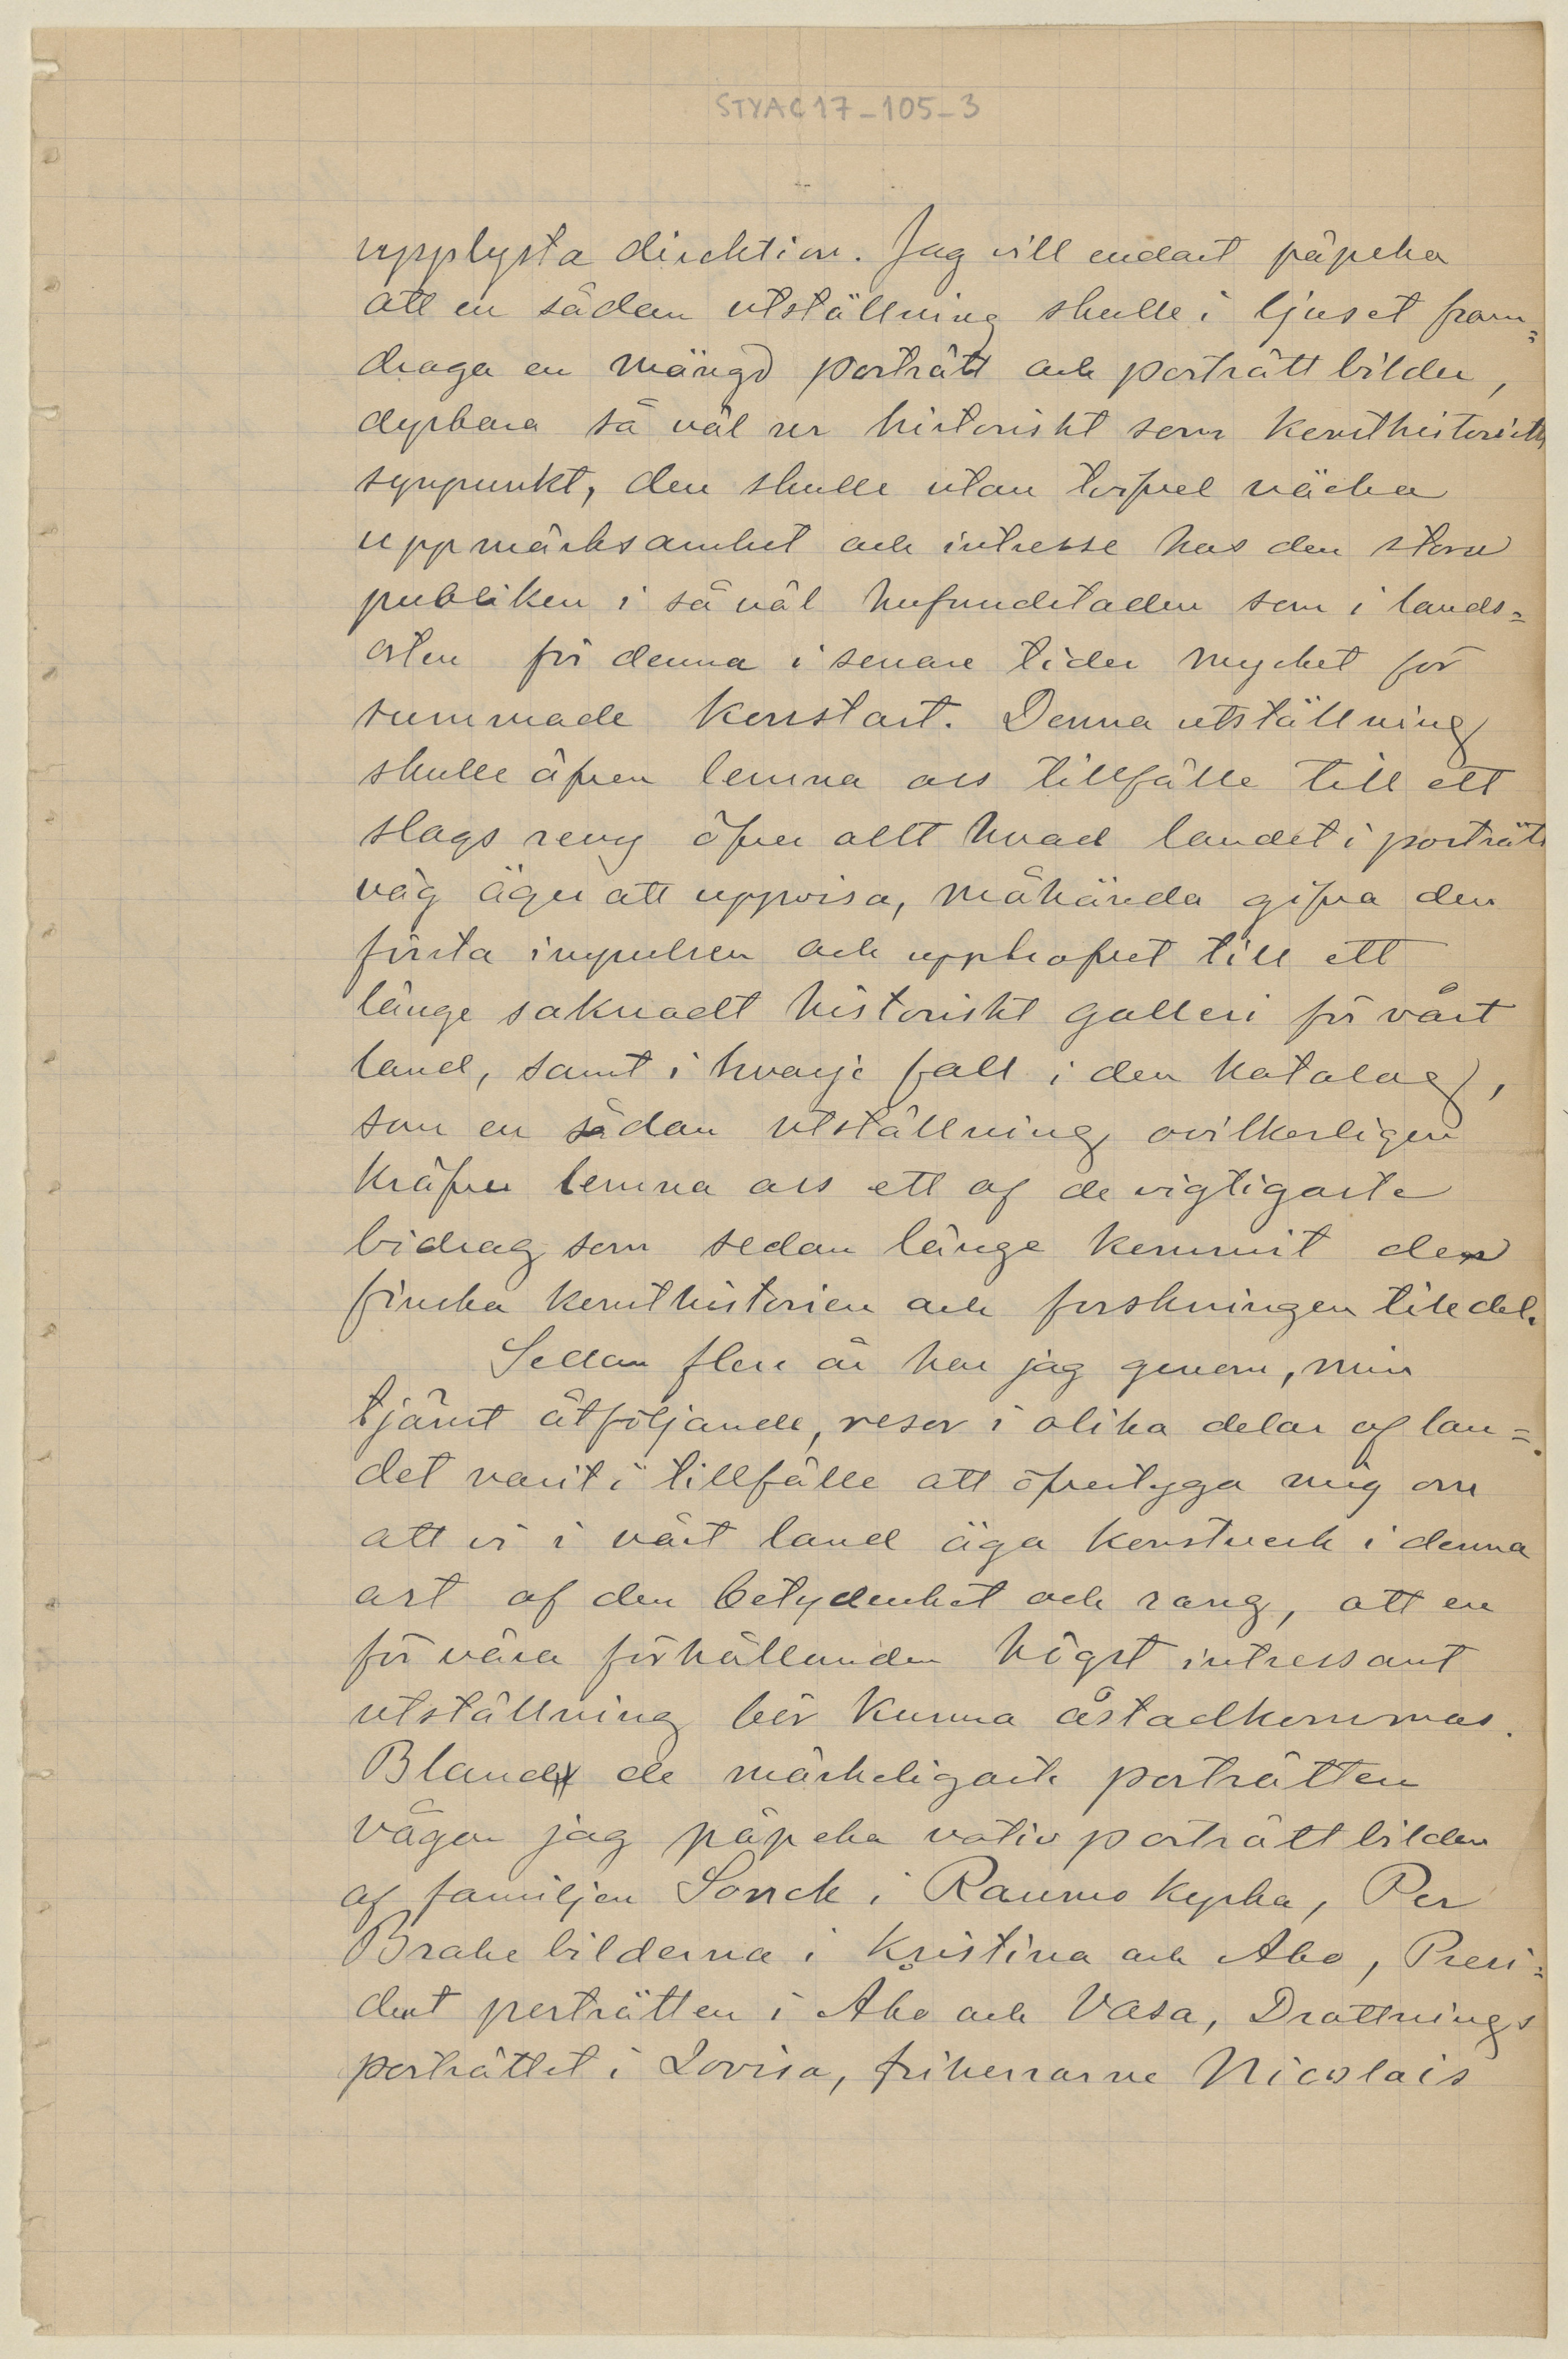 STYAC17-105-3
upplysta direktion. Jag vill endast påpeka
att en sådan utställning skulle i ljuset fram=
draga en mängd porträtt och porträttbilder,
dyrbara så väl ur historiskt som konsthistorisk
synpunkt, den skulle utan tvifvel väcka
uppmärksamhet och intresse hos den stora
publiken i så väl hufvudstaden som i lands=
orten för denna i senare tider mycket för
summade konstart. Denna utställning
skulle äfven lemna oss tillfälle till ett
slags revy öfver allt hvad landet i porträtt
väg äger att uppvisa, måhända gifva den
första impulsen och upphofvet till ett
länge saknadt historiskt galleri för vårt
land, samt i hvarje fall i den katalog,
som en sådan utställning ovilkorligen
kräfver lemna oss ett af de vigtigaste
bidrag som sedan länge kommit den
finska konsthistorien och forskningen till del.
Sedan flere år har jag genom, min
tjänst åtföljande, resor i olika delar af lan=
det varit i tillfälle att öfvertyga mig om
att vi i vårt land äga konstverk i denna
art af den betydenhet och rang, att en
för våra förhållanden högst intressant
utställning bör kunna åstadkommas.
Bland de märkeligaste porträtten
vågar jag påpeka votiv porträttbilden
af familjen Sonck i Raumo kyrka, Per
Brahe bilderna i Kristina och Åbo, Presi=
dent porträtten i Åbo och Vasa, Drottnings
porträttet i Lovisa, friherrarne Nicolais